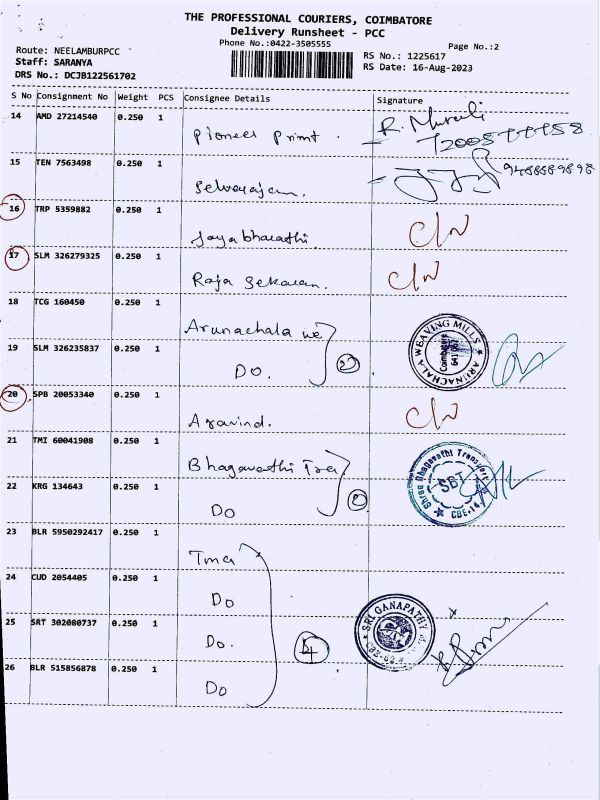 THE PROFESSIONAL COURIERS, COIMBATORE
Delivery Runsheet - PCC
Phone No.:0422-3505555
Page No.:2
Route: NEELAMBURPCC
RS No.: 1225617
Staff: SARANYA
RS Date: 16-Aug-2023
DRS No.: DCJB122561702
S No Consignment No Weight PCS Consignee Details Signature
14 AMD 27214540 0.250 1
Pioneer Print. R. Murali
15 TEN 7563498 0.250 1
Selvarajan.
16 TRP 5359882 0.250 1
Jayabharathi. C/N
17 SLM 326279325 0.250 1
Raja Sekaran. C/N
18 TCG 160450 0.250 1
Arunachala we
19 SLM 326235837 0.250 1
Do. 2
ARUNACHALA WEAVING MILLS
Coimbatore
20 SPB 20053340 0.250 1
Aravind. C/N
21 TMI 60041908 0.250 1
Bhagavathi Tra
22 KRG 134643 0.250 1
Do 2
Shree Bhagavathi Transport
SBT
CBE-14
23 BLR 5950292417 0.250 1
24 CUD 2054405 0.250 1
Do
25 SRT 302080737 0.250 1
Do. 4
SRI GANAPATHY
26 BLR 515856878 0.250 1
Do